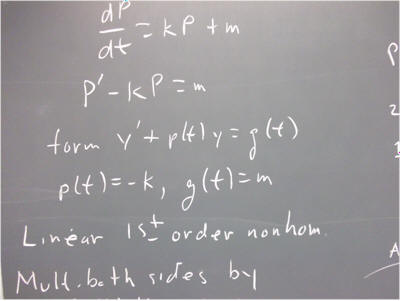 dP/dt = kP + m
P' - kP = m
form y' + p(t) y = g(t)
p(t) = -k, g(t) = m
Linear 1st order nonhom.
Mult. both sides by
P
2
1
A